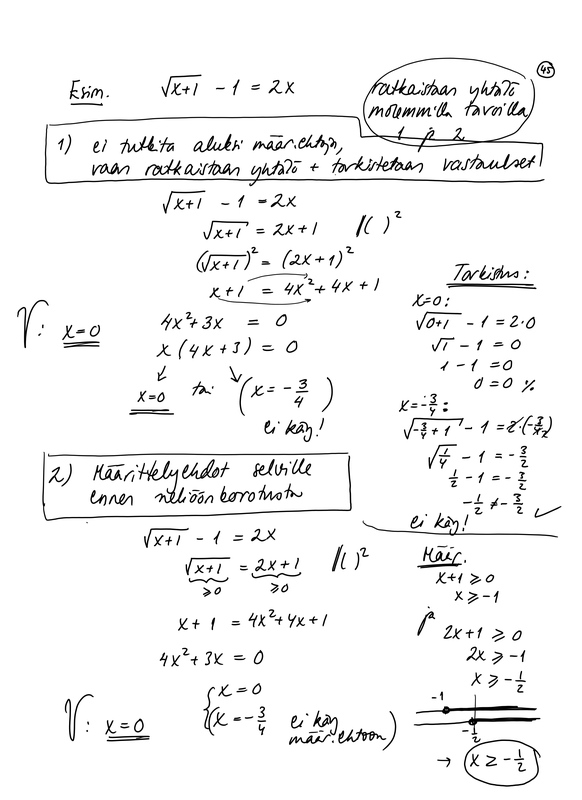 45
Esim. √x+1 - 1 = 2x
ratkaistaan yhtälö
molemmilla tavoilla
1 ja 2
1) ei tutkita aluksi määr.ehtoja,
vaan ratkaistaan yhtälö + tarkistetaan vastaukset
√x+1 - 1 = 2x
√x+1 = 2x+1 ||( )²
(√x+1)² = (2x+1)²
x+1 = 4x²+4x+1
4x²+3x = 0
V: x=0
x(4x+3) = 0
↙ ↘
x=0 tai (x = -3/4)
ei käy!
Tarkistus:
x=0:
√0+1 - 1 = 2·0
√1 - 1 = 0
1 - 1 = 0
0 = 0 %
x = -3/4:
√-3/4+1 - 1 = 2·(-3/42)
√1/4 - 1 = -3/2
1/2 - 1 = -3/2
-1/2 ≠ -3/2
ei käy! ✓
2) Määrittelyehdot selville
ennen neliöönkorotusta
√x+1 - 1 = 2x
√x+1 = 2x+1 ||( )²
≥0 ≥0
x + 1 = 4x²+4x+1
4x²+3x = 0
{ x = 0
(x = -3/4 ei käy
määr.ehtoon)
V: x=0
Määr.
x+1 ≥ 0
x ≥ -1
ja
2x+1 ≥ 0
2x ≥ -1
x ≥ -1/2
-1
-1/2
→ x ≥ -1/2